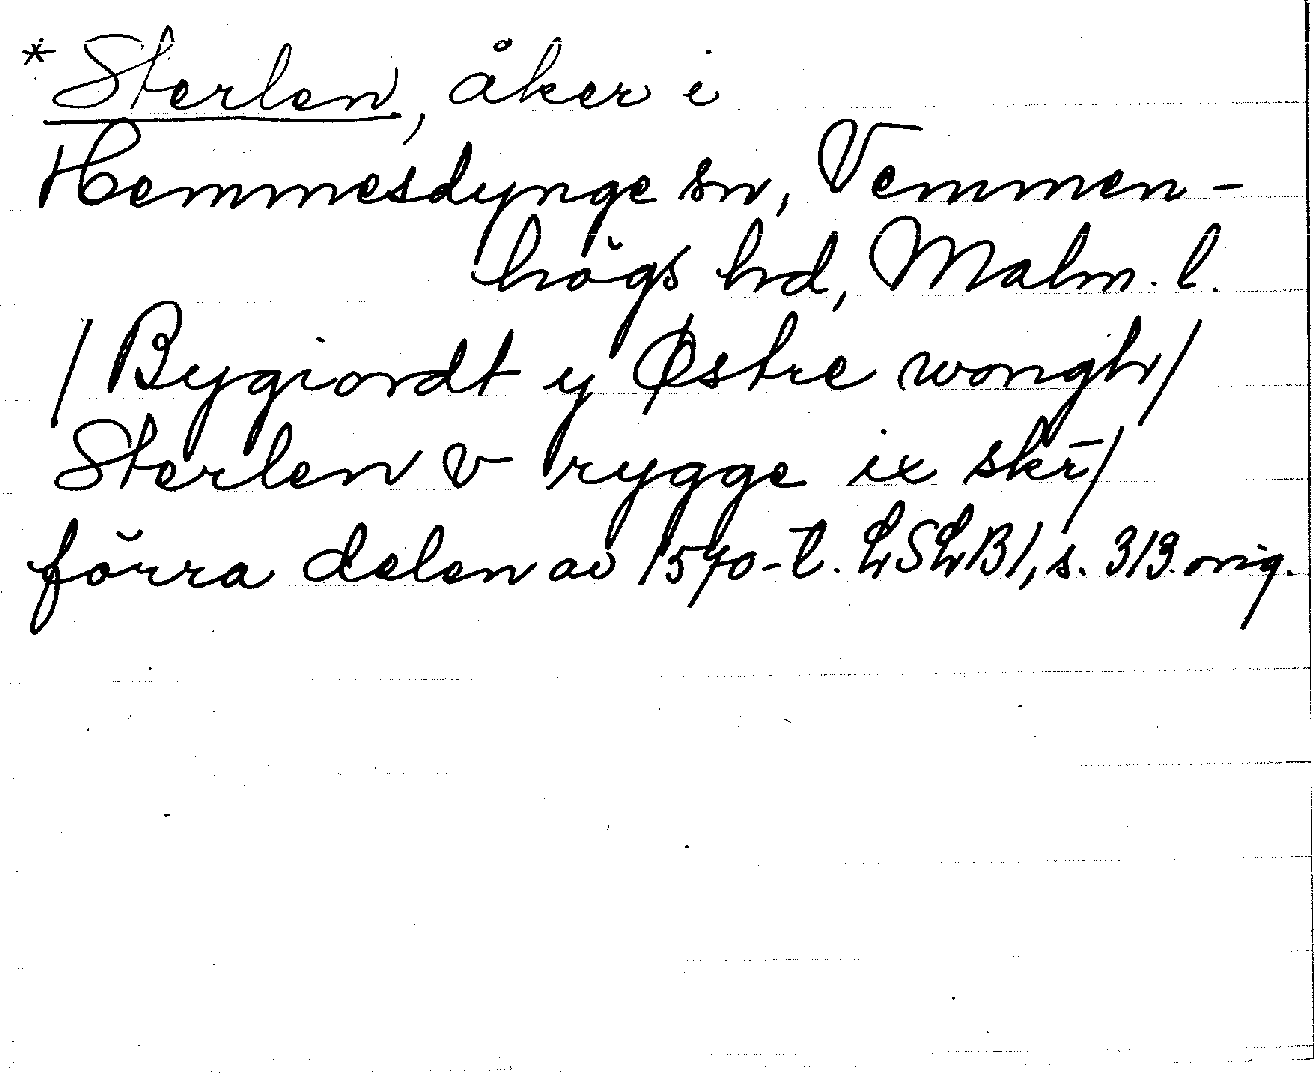 *Sterlen, åker i
Hemmesdynge sn, Vemmen-
högs hd, Malm. l.
/Bygiordt y Østre wongh/
Sterlen v rygge ix skr̄/
förra delen av 1570-t. LSLB1, s. 313. orig.